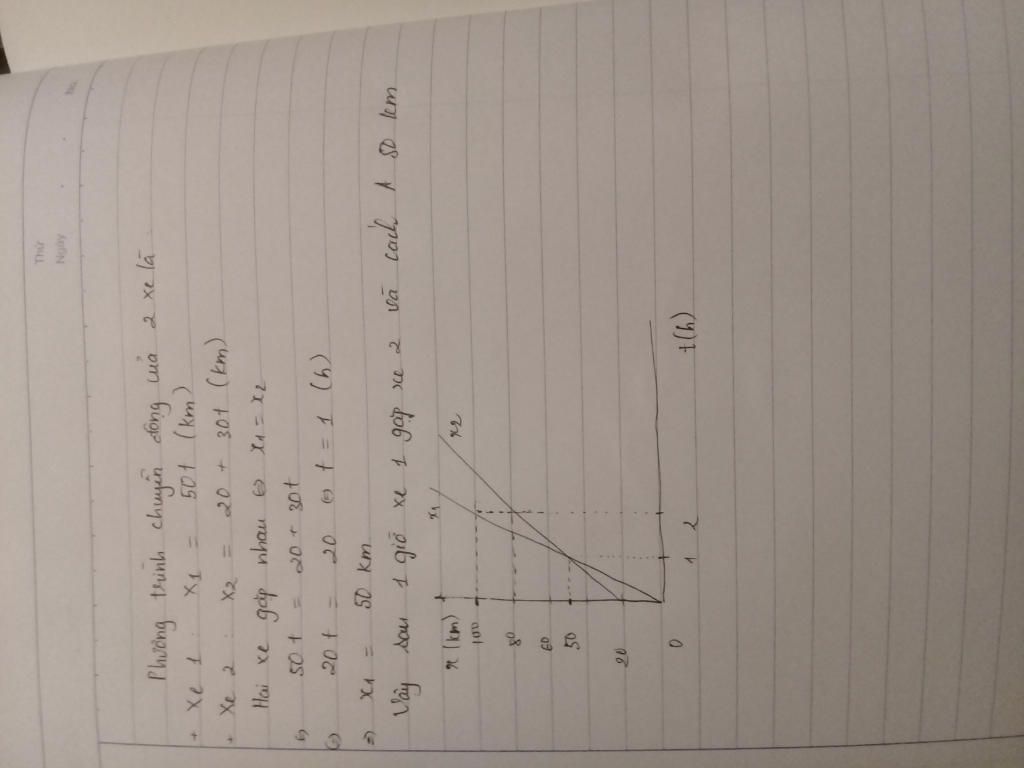 Thứ
Ngày
No.
Phương trình chuyển động của 2 xe là
+ xe 1 : x1 = 50t (km)
+ Xe 2 : x2 = 20 + 30t (km)
Hai xe gặp nhau ⇔ x1 = x2
⇔ 50t = 20 + 30t
⇔ 20t = 20 ⇔ t = 1 (h)
⇒ x1 = 50 km
Vậy sau 1 giờ xe 1 gặp xe 2 và cách A 50 km
x (km)
x1
x2
100
80
60
50
20
0
1
2
t(h)